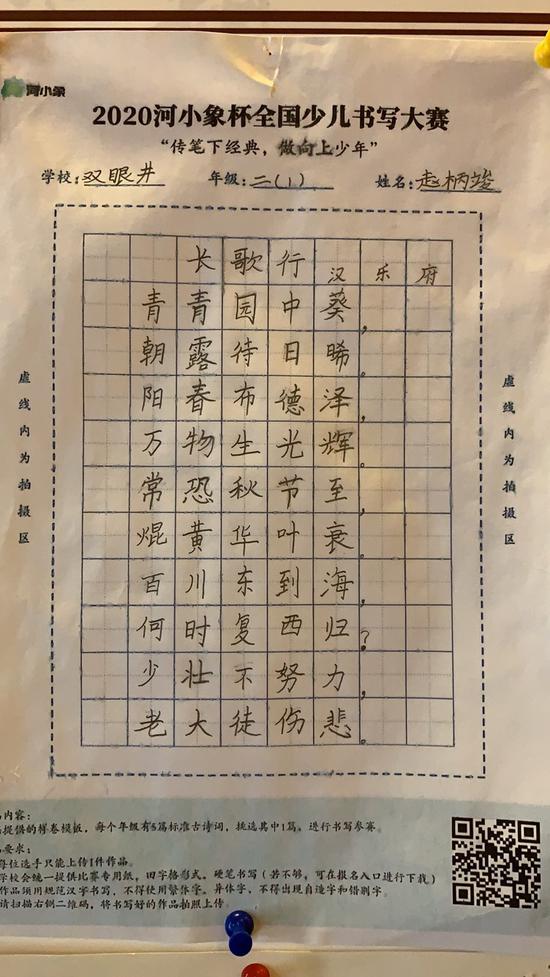 河小象
2020河小象杯全国少儿书写大赛
“传笔下经典，做向上少年”
学校:双眼井 年级:二(1) 姓名:赵柄竣
长歌行 汉乐府
青青园中葵，
朝露待日晞。
阳春布德泽，
万物生光辉。
常恐秋节至，
焜黄华叶衰。
百川东到海，
何时复西归？
少壮不努力，
老大徒伤悲。
虚线内为拍摄区
虚线内为拍摄区
内容:
提供的样卷模板，每个年级有5篇标准古诗词，挑选其中1篇，进行书写参赛。
要求:
每位选手只能上传1件作品。
学校会统一提供比赛专用纸，田字格形式。硬笔书写（若不够，可在报名入口进行下载）
作品须用规范汉字书写，不得使用繁体字、异体字，不得出现自造字和错别字。
请扫描右侧二维码，将书写好的作品拍照上传。